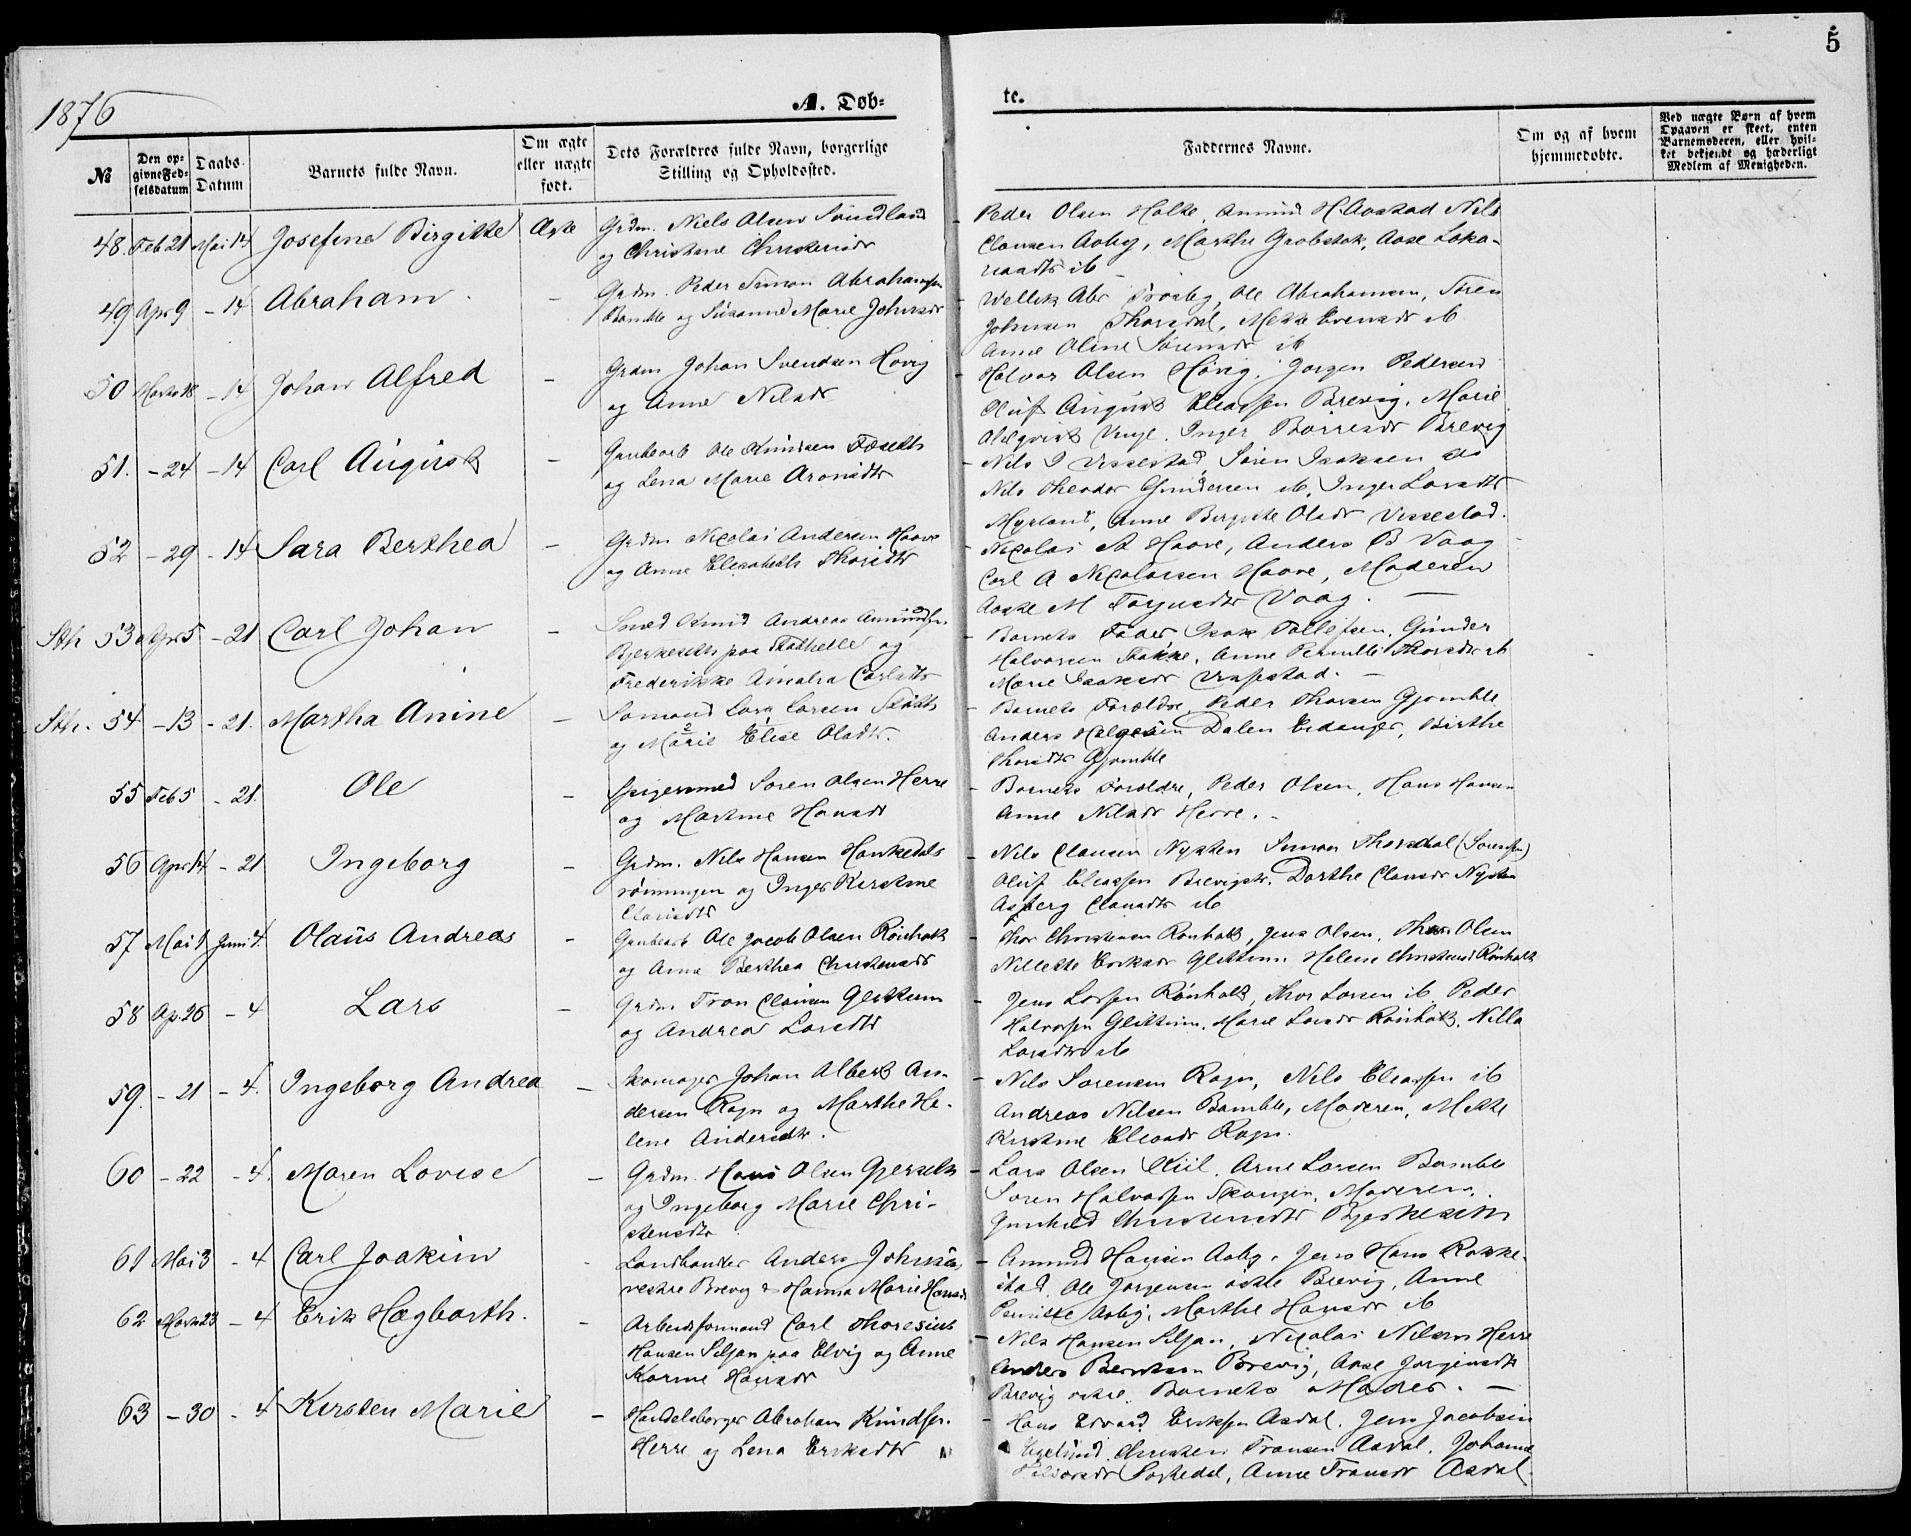 5
1876
A. Døb-
te.
№
Den op-
givne Fød-
selsdatum
Daabs-
Datum
Barnets fulde Navn.
Om ægte
eller uægte
født.
Dets Forældres fulde Navn, borgerlige
Stilling og Opholdssted.
Faddernes Navne.
Om og af hvem
hjemmedøbte.
Ved uægte Børn af hvem
Opgaven er skeet, enten
Barnemoderen, eller hvil-
ket bekjendt og hæderligt
Medlem af Menigheden.
48. Feb 21 Mai 14 Josefine Birgitte Ægte Grdm. Niels Olsen Svindland
og Christine Christensdr
Peder Olsen Holte, Amund H. Aavstad Nils
Clausen Aaby, Marthe Grobstok, Aase Loka-
raadtr ib
49 Apr 9 - 14 Abraham. - Grdm. Peder Simon Abrahamsen
Bamble og Susanne Marie Johnsdr
Abr Traaby, Ole Abrahamsen, Søren
Johnsen Thorsdal, Mette Evensdr ib
Anne Oline Sørensdr ib
50 Marts 18 - 14 Johan Alfred - Grdm Johan Svendsen Hovig
og Anne Nilsdr
Halvor Olsen Høvig, Jørgen Pedersen
Oluf August Eliassen Brevig, Marie
Inger Børresdr Brevig
51. - 24 - 14 Carl August - Grubearb Ole Knudsen Fæseth
og Lena Marie Aronsdtr
Nils I Vissestad, Søren Isaksen do
Nils Theodor Gundersen ib, Inger Larsdtr
Myrland, Anne Birgitte Olsdr Vissestad.
52 - 29 - 14 Sara Berthea - Grdm Nicolai Andersen Haave
og Anne Elisabeth Thorsdtr
Nicolai A Haave, Anders B Vaag
Carl A Nicolaisen Haave, Moderen
Aaste M Torjusdtr Vaag. -
Sth 53 Apr 5 - 21 Carl Johan - Andreas Amundsen
Bjerkeseth paa Stathelle og
Frederikke Amalia Carlsdtr
Barnets Fader, Isak Tollefsen, Gunder
Halvorsen Stokke, Anne Pernille Thorsdr ib
Marie Isaksdr Vissestad. -
Sth. 54 - 13 - 21. Martha Anine - Sømand Lars Larsen
og Marie Elise Olsdtr.
Barnets Forældre, Peder Thorsen Gjømble
Anders Halgesen Dalen Eidanger, Birthe
Thorsdtr Gjømble
55 Feb 5 - 21. Ole - Spigersmed Søren Olsen Herre
og Martine Hansdr
Barnets Forældre, Peder Olsen, Hans Hansen
Anne Nilsdr Herre. -
56 Apr 14 - 21 Ingeborg - Grdm. Nils Hansen Hankedals
rønningen og Inger Kirstine
Clausdtr
Nils Clausen Nysten Simon Thorsdal (Sørensen)
Oluf Eliassen Brevigstr. Dorthe Clausdr Nysten
Asberg Clausdtr ib
57 Mai 1 Juni 4. Olaus Andreas - Grubearb Ole Jacob Olsen Rønholt
og Anne Berthea Christensdr
Thor Christensen Rønholt, Jens Olsen, Thor Olsen
Nillette Eriksdr Glittum. Helene Christensd Rønholt
58 Ap. 26 - 4 Lars - Grdm Tron Clausen Glittum
og Andrea Larsdtr
Jens Larsen Rønholt, Thor Larsen ib. Peder
Halvorsen Glittum. Marie Larsdr Rønholt. Nilla
Larsdtr ib
59. - 21 - 4. Ingeborg Andrea - Skomager Johan Albert An-
dersen Rogn og Marthe He-
lene Andersdtr.
Nils Sørensen Rogn, Nils Eliassen ib
Andreas Nilsen Bamble, Moderen, Mette
Kirstine Eliasdr Rogn.
60 - 22 - 4. Maren Lovise - Grdm. Hans Olsen Gjerseth
og Ingeborg Marie Chri-
stensdtr
Lars Olsen Kiil. Arne Larsen Bamble
Søren Halvorsen Skougen, Moderen,
Gunhild Christensdtr Bjerkeseth
61 Mai 3 - 4 Carl Joakim - Landhandler Anders Johnsen,
vestre Brevig & Hanna Marie Hansd
Amund Hansen Aaby, Jens Hans Rakke-
stad, Ole Jørgensen østre Brevig, Anne
Pernille Aaby, Marthe Hansdr ib
62 Marts 23 - 4 Erik Hagbarth. - Arbeidsformand Carl Thoresius
Hansen Siljan paa Elvig og Anne
Karine Hansdr
Nils Hansen Siljan, Nicolai Nilsen Herre
Anders Berntsen Brevig, Aase Jørgensdtr
Brevig østre. Barnets Moder. -
63 - 30 - 4 Kirsten Marie - Handelsborger Abraham Knudsen.
Herre og Lena Eriksdtr
Hans Edvard Eriksen Asdal. Jens Jacobsen
Christen Fransen Asdal. Johanne
Halvorsdr, Anne Fransdr Asdal.